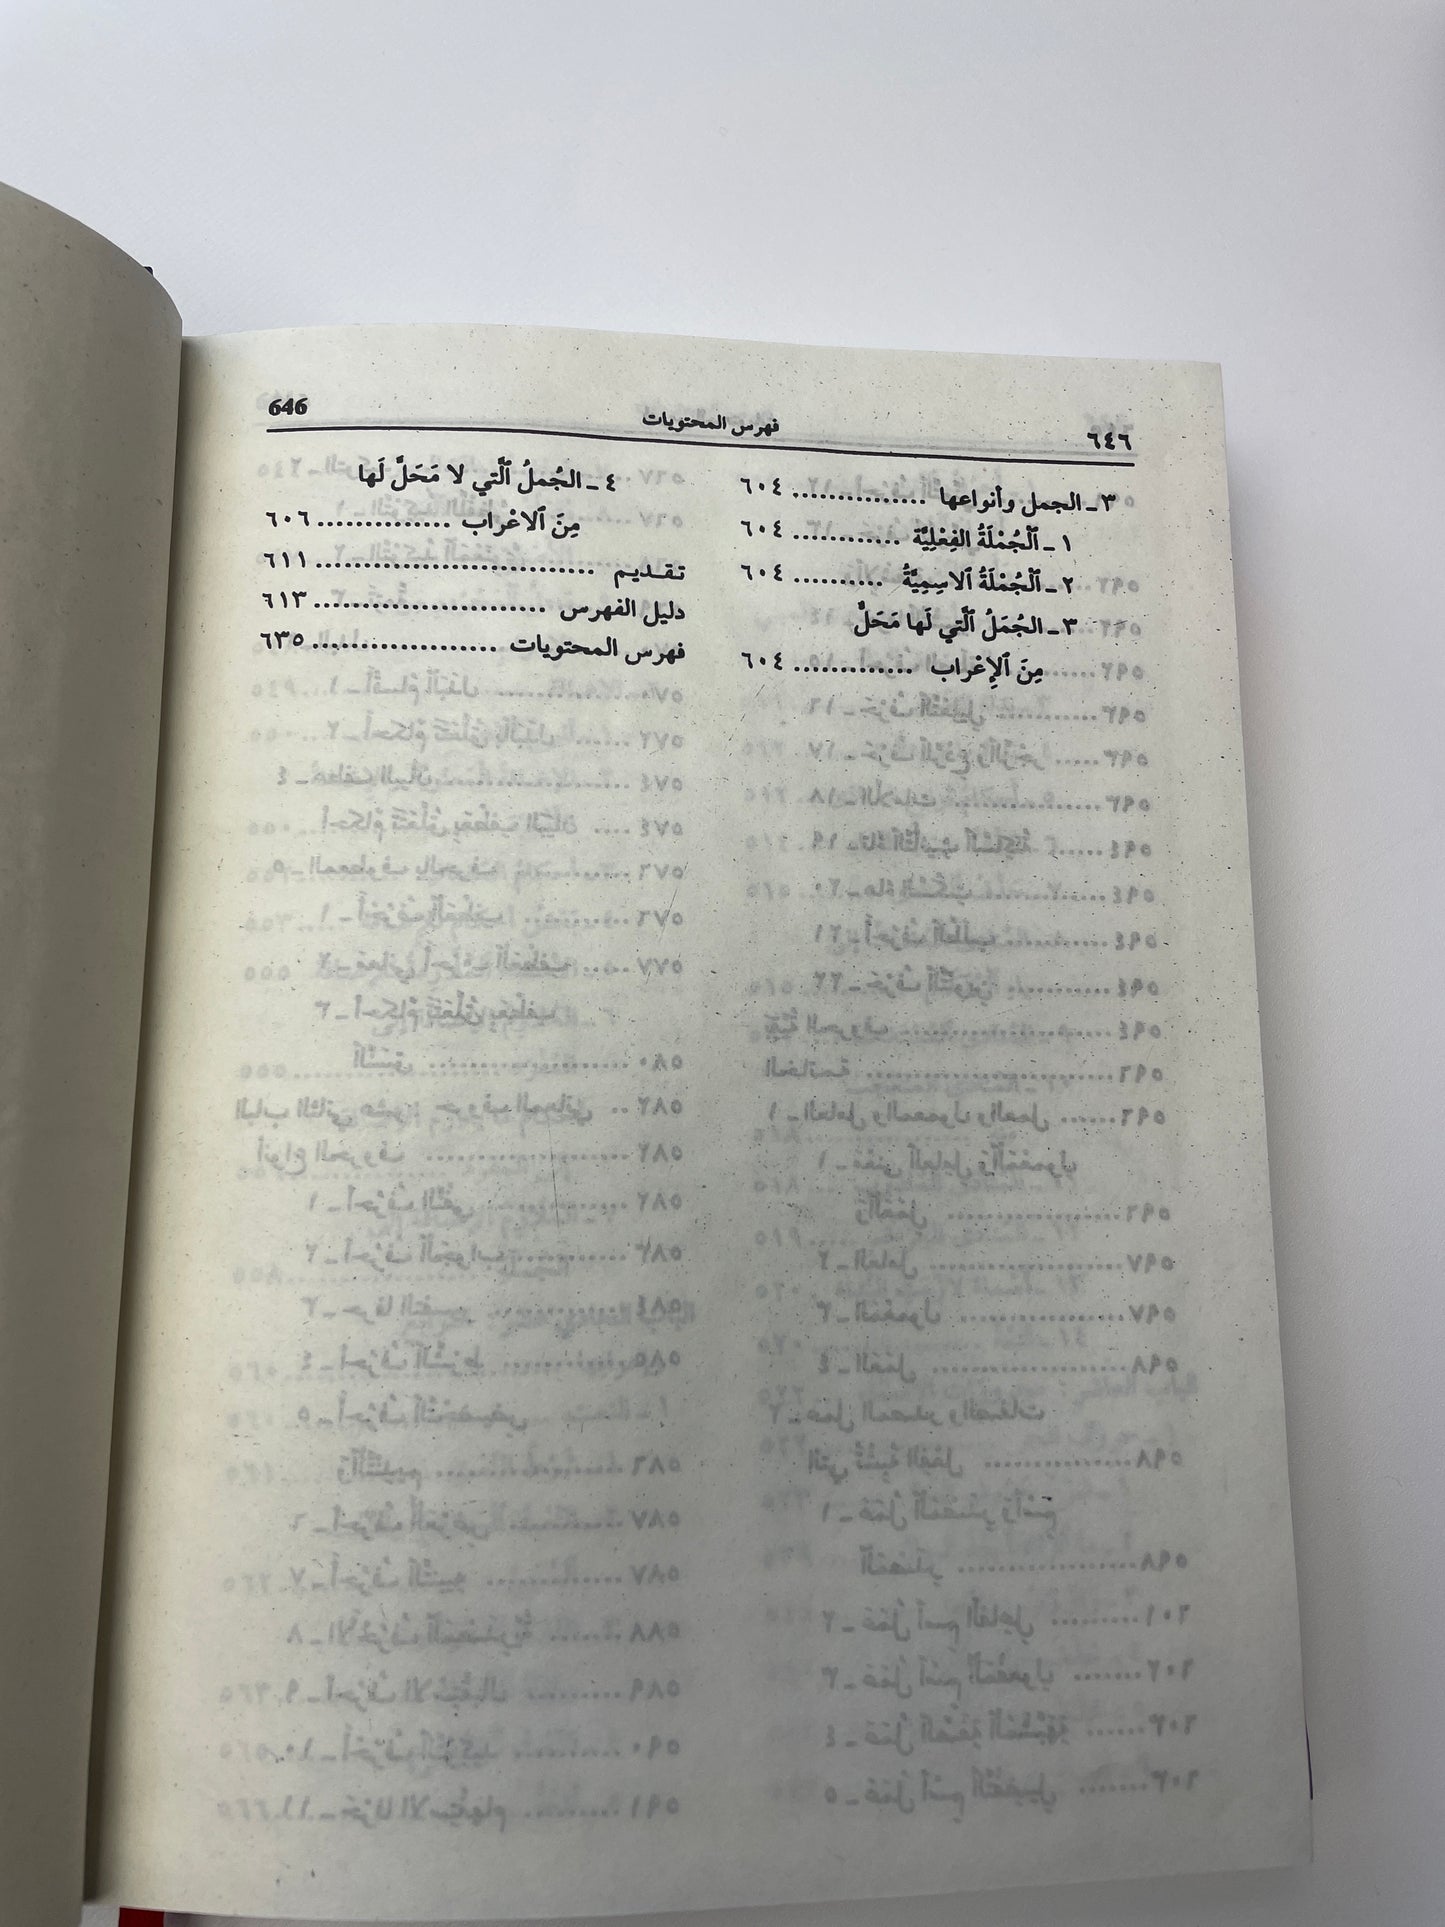 646
فهرس المحتويات
٦٤٦
٣ـ الجمل وأنواعها ............... ٦٠٤
١ ـ ٱلْجُمْلَةُ الفِعْلِيَّة ............ ٦٠٤
٢ ـ ٱلْجُمْلَةُ ٱلاسِمِيَّةُ .......... ٦٠٤
٣ ـ الجُمَلُ ٱلَّتي لَها مَحَلٌّ
مِنَ ٱلإِعْراب ............. ٦٠٤
٤ ـ الجُملُ ٱلَّتي لا مَحَلَّ لَها
مِنَ ٱلاعْراب .............. ٦٠٦
تقـديم ............................ ٦١١
دليل الفهرس ....................... ٦١٣
فهرس المحتويات ................... ٦٣٥